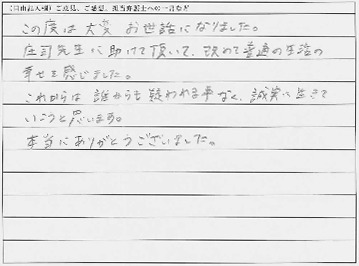 (自由記入欄) ご意見、ご感想、担当弁護士への一言など
この度は大変 お世話になりました。
庄司先生に助けて頂いて、改めて普通の生活の
幸せを感じました。
これからは 誰からも疑われる事なく、誠実に生きて
いこうと思います。
本当にありがとうございました。